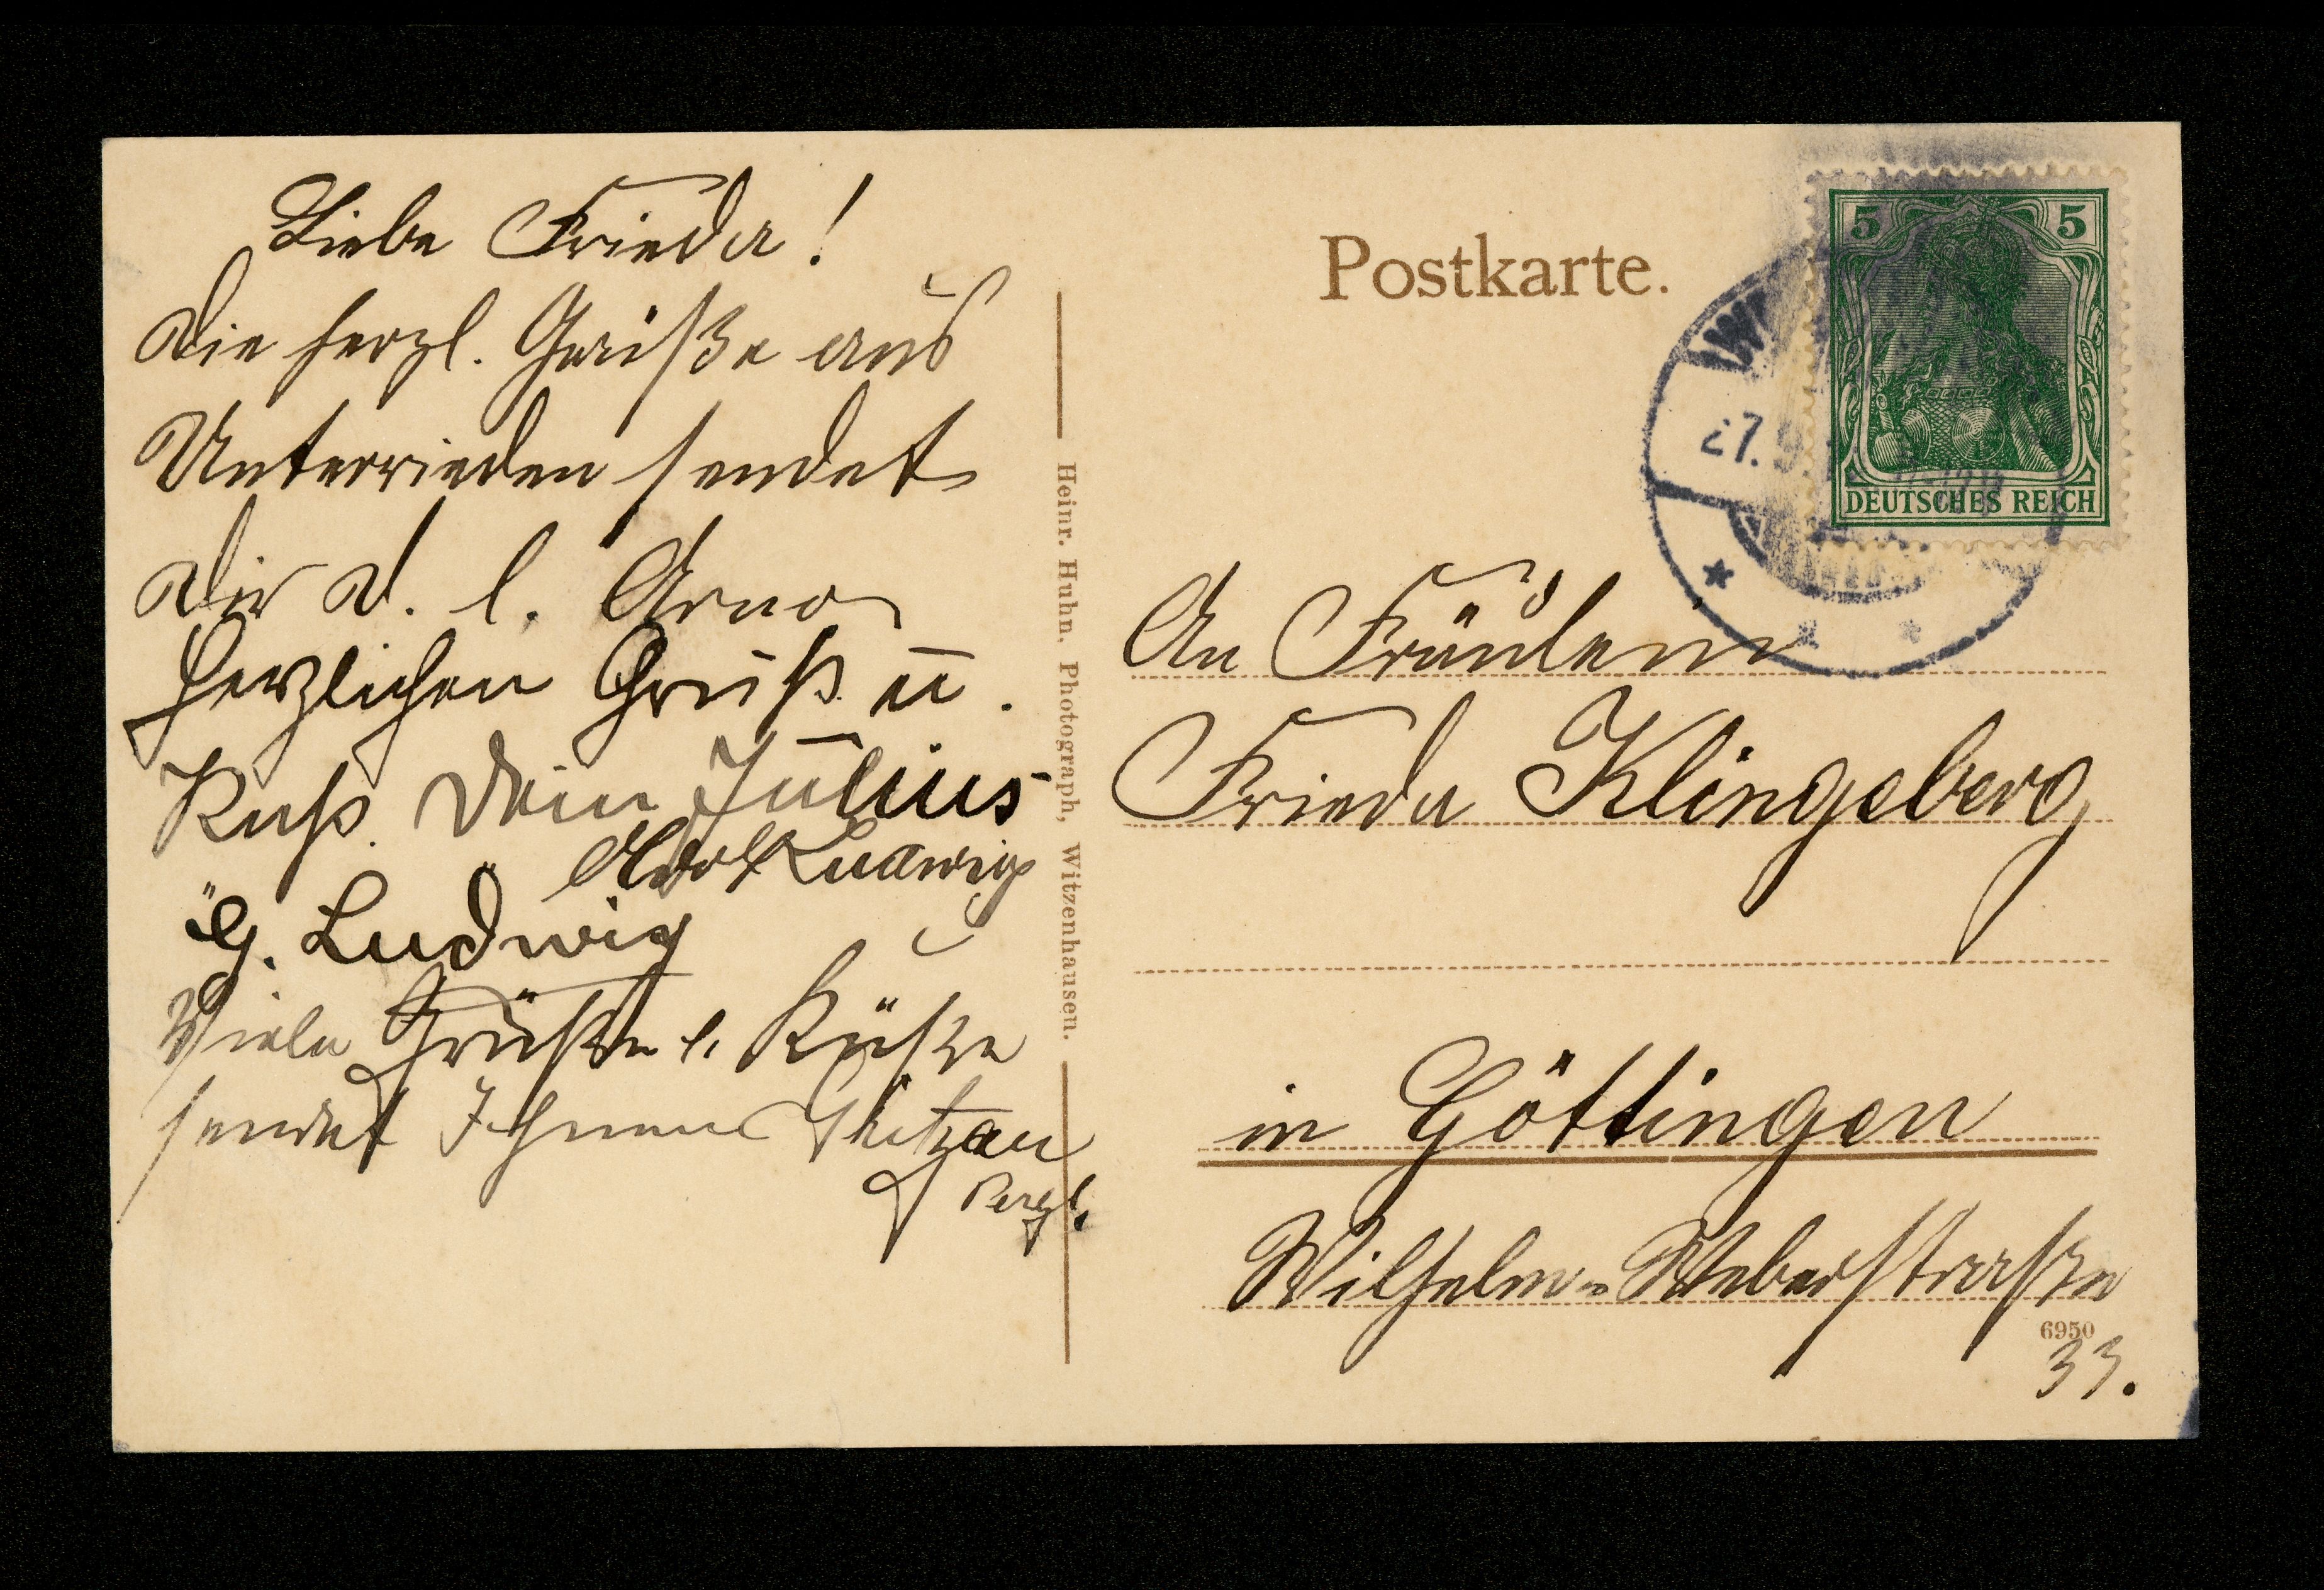 Liebe Frieda!
Die herzl. Grüße aus
Unterrieden sendet
Dir D. l. Arno
Herzlichen Gruß u.
Kuß. Dein Julius
Adolf Ludwig
G. Ludwig
Viele Grüße u. Küsse
sendet Ihnen
Heinr. Huhn, Photograph, Witzenhausen.
Postkarte.
5 5
DEUTSCHES REICH
27.9.
An Fräulein
Frieda Klingeberg
in Göttingen
Wilhelm-Weberstrasse
6950
33.